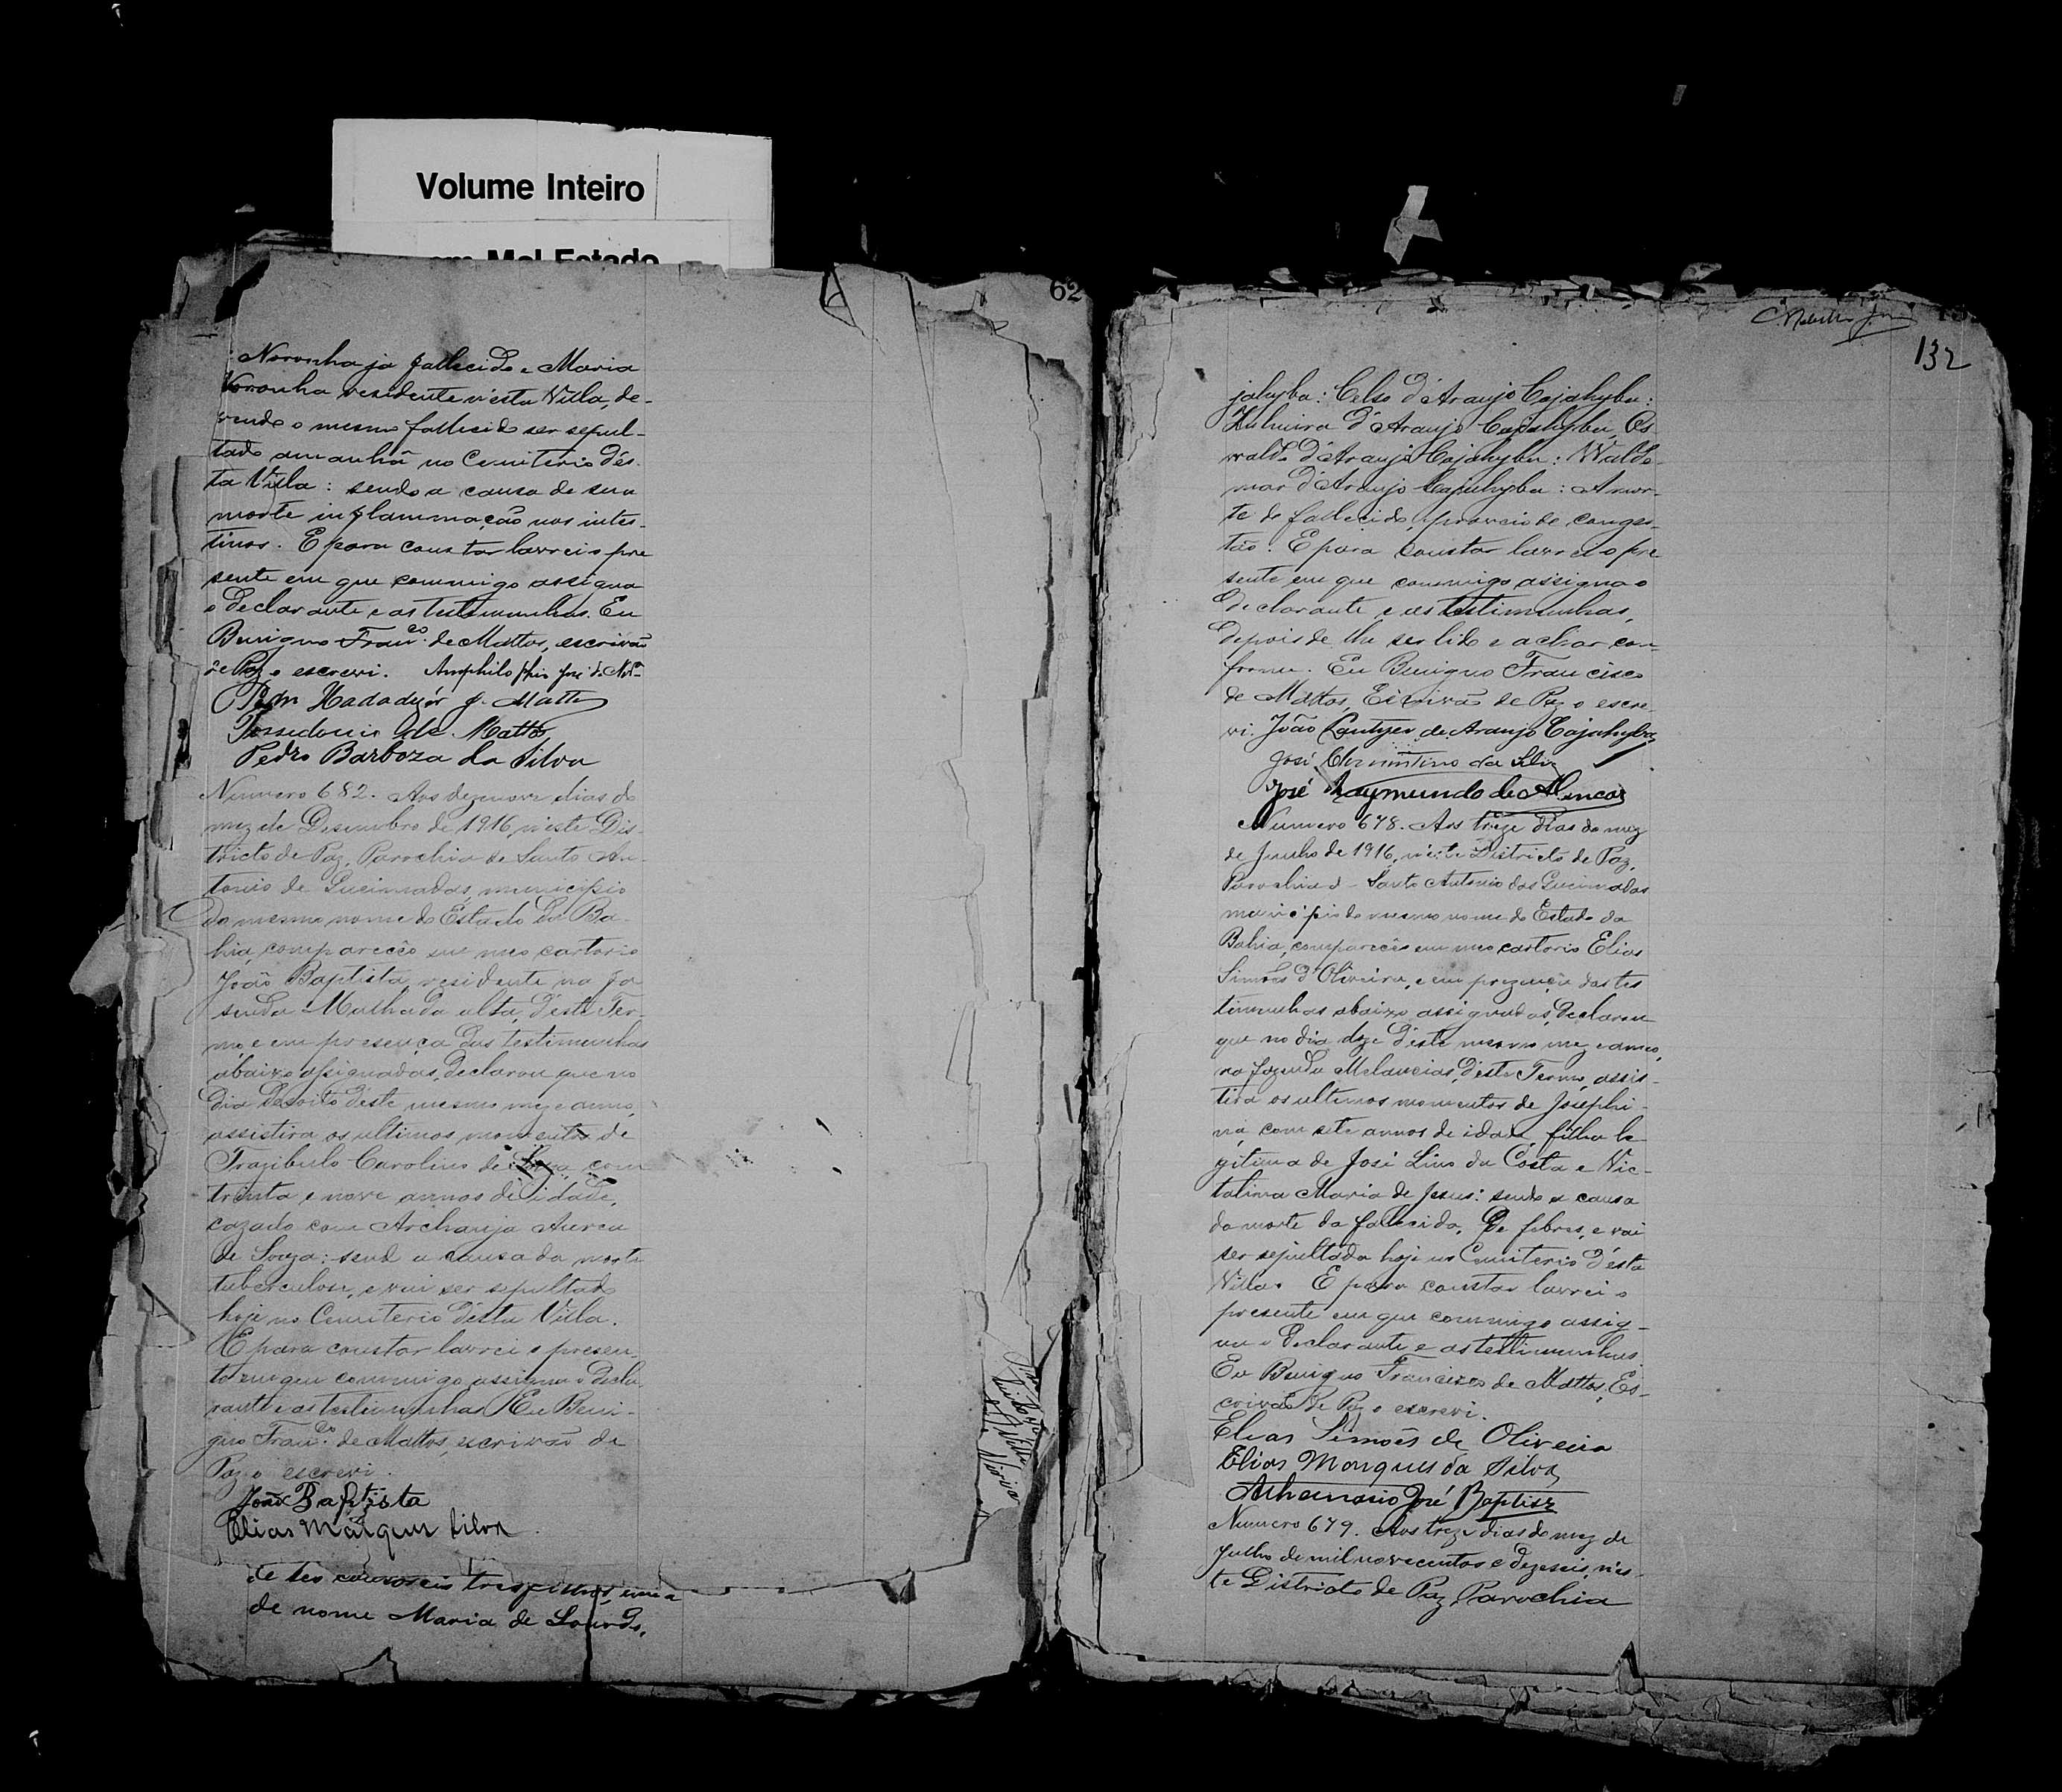 Volume Inteiro
em Mal Estado
62
Noronha ja fallecido e Maria
Noronha residente n'esta Villa, de-
vendo o mesmo fallecido ser sepul-
tado amanhã no Cemiterio d'es-
ta Villa: sendo a causa de sua
morte inflammação nos intes-
tinos. E para constar lavrei o pre
sente em que commigo assigna
o declarante e as testemunhas. Eu
Benigno Franco. de Mattos, escrivão
de Paz o escrevi. Amphilophio José de
Possedonio de Mattos
Pedro Barboza da Silva
Numero 682. Aos dezenove dias do
mez de Desembro de 1916, n'este Dis-
tricto de Paz, Parochia de Santo An-
tonio de Queimadas, municipio
do mesmo nome do Estado da Ba-
hia, compareceo em meo cartorio
João Baptista, residente na fa
senda Malhada alta, d'este Ter-
mo, e em presença das testimunhas
abaixo assignadas, declarou que no
dia desoito d'este mesmo mez e anno,
assistira os ultimos momentos de
Trazibulo Carolino de Souza com
trinta e nove annos de idade,
cazado com Archanja Aurea
de Souza: send a causa da morte
tuberculose, e vai ser sepultado
hoje no Cemiterio d'esta Villa.
E para constar lavrei o presen-
te em que commigo assigna o decla
rante e as testimunhas. Eu Beni-
gno Franco. de Mattos, escrivão de
Paz o escrevi.
João Baptista
Elias Marques Silva
de seo tres filhos, uma
de nome Maria de Lourdes,
132
jahyba: Celso d'Araujo Cajahyba:
Zulmira d'Araujo Cajahyba, Os-
waldo d'Araujo Cajahyba: Walde-
mar d'Araujo Cajahyba: A mor-
te de fallecido, proveio de conges-
tão: E para constar lavrei o pre
sente em que commigo assigna o
declarante e as testimunhas,
depois de lhe ser lido e achar con-
forme. Eu Benigno Francisco
de Mattos, Escrivão de Paz o escre-
vi. João de Araujo Cajahyba
José da Silva
José Raymundo de Alencar
Numero 678. Aos treze dias do mez
de Junho de 1916, n'este Districto de Paz,
Parochia d Santo Antonio das Queimadas
municipio do mesmo nome do Estado da
Bahia, compareceo em meo cartorio Elias
Simões d'Oliveira, e em prezença das tes
timunhas abaixo assignadas, declarou
que no dia doze d'este mesmo mez e anno,
na fazenda Melancias, d'este Termo, assis-
tira os ultimos momentos de Josephi-
na, com sete annos de idade, filha le-
gitima de José Lino da Costa e Vic-
talina Maria de Jesus: sendo a causa
da morte da fallecida, de febres, e vai
ser sepultada hoje no Cemiterio d'esta
Villa. E para constar lavrei o
presente em que commigo assig-
na o declarante e as testimunhas
Eu Benigno Francisco de Mattos, Es-
crivão de Paz o escrevi.
Elias Simões de Oliveira
Elias Marques da Silva
Athanasio José Baptista
Numero 679. Aos treze dias do mez de
Julho de mil novecentos e dezeseis, n'es-
te Districto de Paz, Parochia